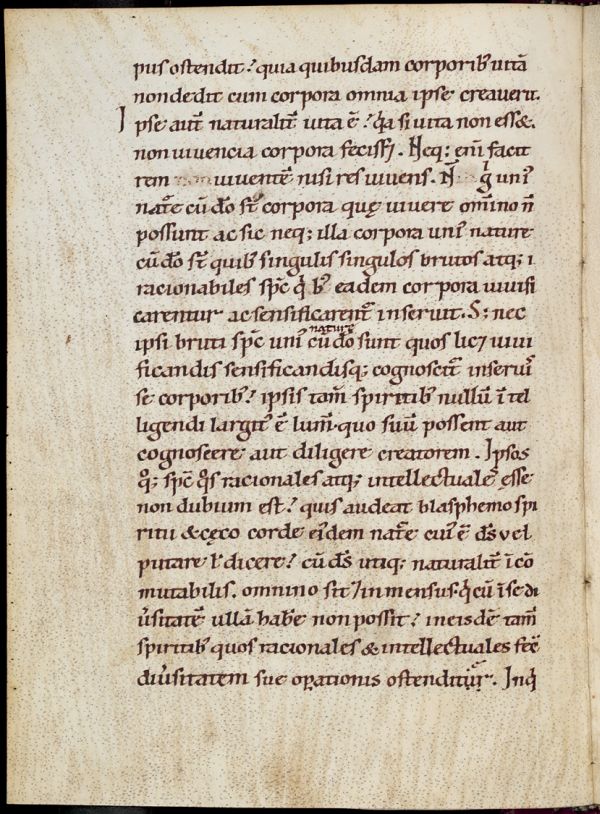 pus ostendit? quia quibusdam corporib; uitā
non dedit cum corpora omnia ipse creauerit.
Ipse aut̄ naturalit̄ uita ē? q̄a si uita non ess&.
non uiuencia corpora fecisset. Neq; eni̅ facit
rem uiuentē nisi res uiuens. N̄ g̊ uni᾽
nat̄e cū d̄o s̄t corpora quę uiuere om̄ino n̄
possunt ac sic neq; illa corpora uni᾽ nature
cū d̄o s̄t quib; singulis singulos brutos atq; i
racionabiles sp̄c quib; eadem corpora uiuifi
carentur ac sensificarent᾽ inseruit. S; nec
ipsi bruti sp̄c uni᾽ nature cū d̄o sunt quos lic& uiui
ficandis sensificandisq; cognoscit᾽ inserui᾽
se corporib;? ipsis tam̄ spiritib; nullū ītel
ligendi largit᾽ ē lum̄. quo suū possent aut
cognoscere aut diligere creatorem. Ipsos
q̊q; sp̄c q̊s racionales atq; intellectuales esse
non dubium est? quis audeat blasphemo spi
ritu & cęco corde ei᾽dem nat̄e cui᾽ ē d̄s uel
putare ł dicere? cū d̄s utiq; naturalit̄ īcō
mutabilis. omnino sit / inmensus. q̇ cū ī se di
u̓sitatē ullā hab̄e non possit? in eisdē tam̄
spiritib; quos racionales & intellectuales fec̄
diu̓sitatem sue oꝑationis ostenditur. Inq̇